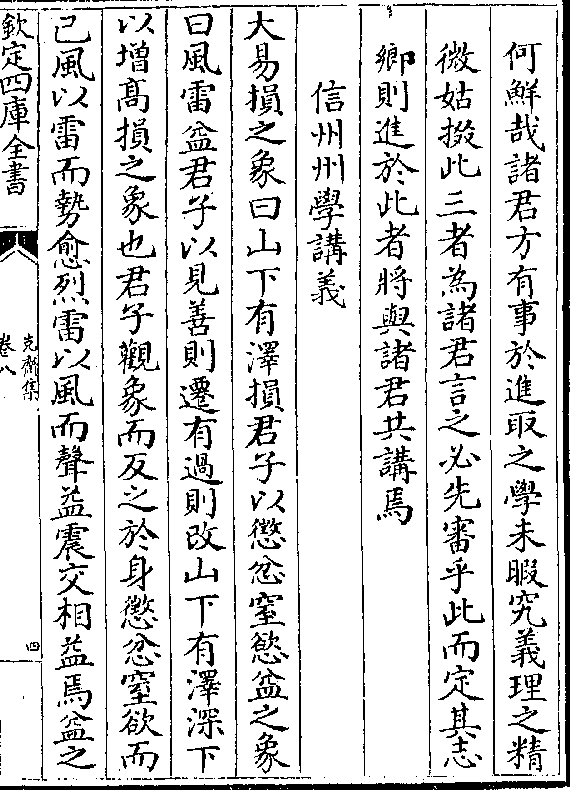 何鮮哉諸君方有事於進取之學未暇究義理之精
微姑掇此三者為諸君言之必先審乎此而定其志
鄉則進於此者將與諸君共講焉
信州州學講義
大易損之象曰山下有澤損君子以懲忿窒慾益之象
曰風雷益君子以見善則遷有過則改山下有澤深下
以增髙損之象也君子觀象而反之於身懲忿窒欲而
已風以雷而勢愈烈雷以風而聲益震交相益焉益之
欽定四庫全書
克齋集
卷八
四